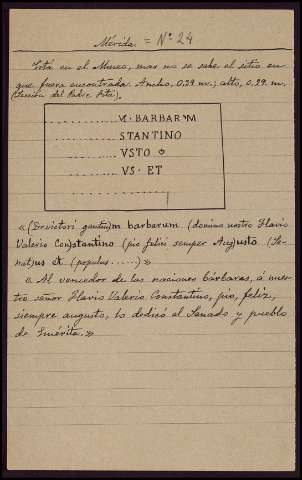 Mérida. = Nº 24
Está en el Museo, mas no se sabe el sitio en
que fuera encontrada. Ancho, 0,29 m.; alto, 0,29. m.
(Lección del Padre Fita).
........... M · BARBARVM
........... STANTINO
........... VSTO
........... VS · ET
« (Devictori gentiu)m barbarum (domino nostro Flavio
Valerio Con)stantino (pio felici semper Aug)usto (Se-
nat)us et (populus ......) »
« Al vencedor de las naciones bárbaras, á nues-
tro señor Flavio Valerio Constantino, pio, feliz,
siempre augusto, lo dedicó el Senado y pueblo
de Emérita. »